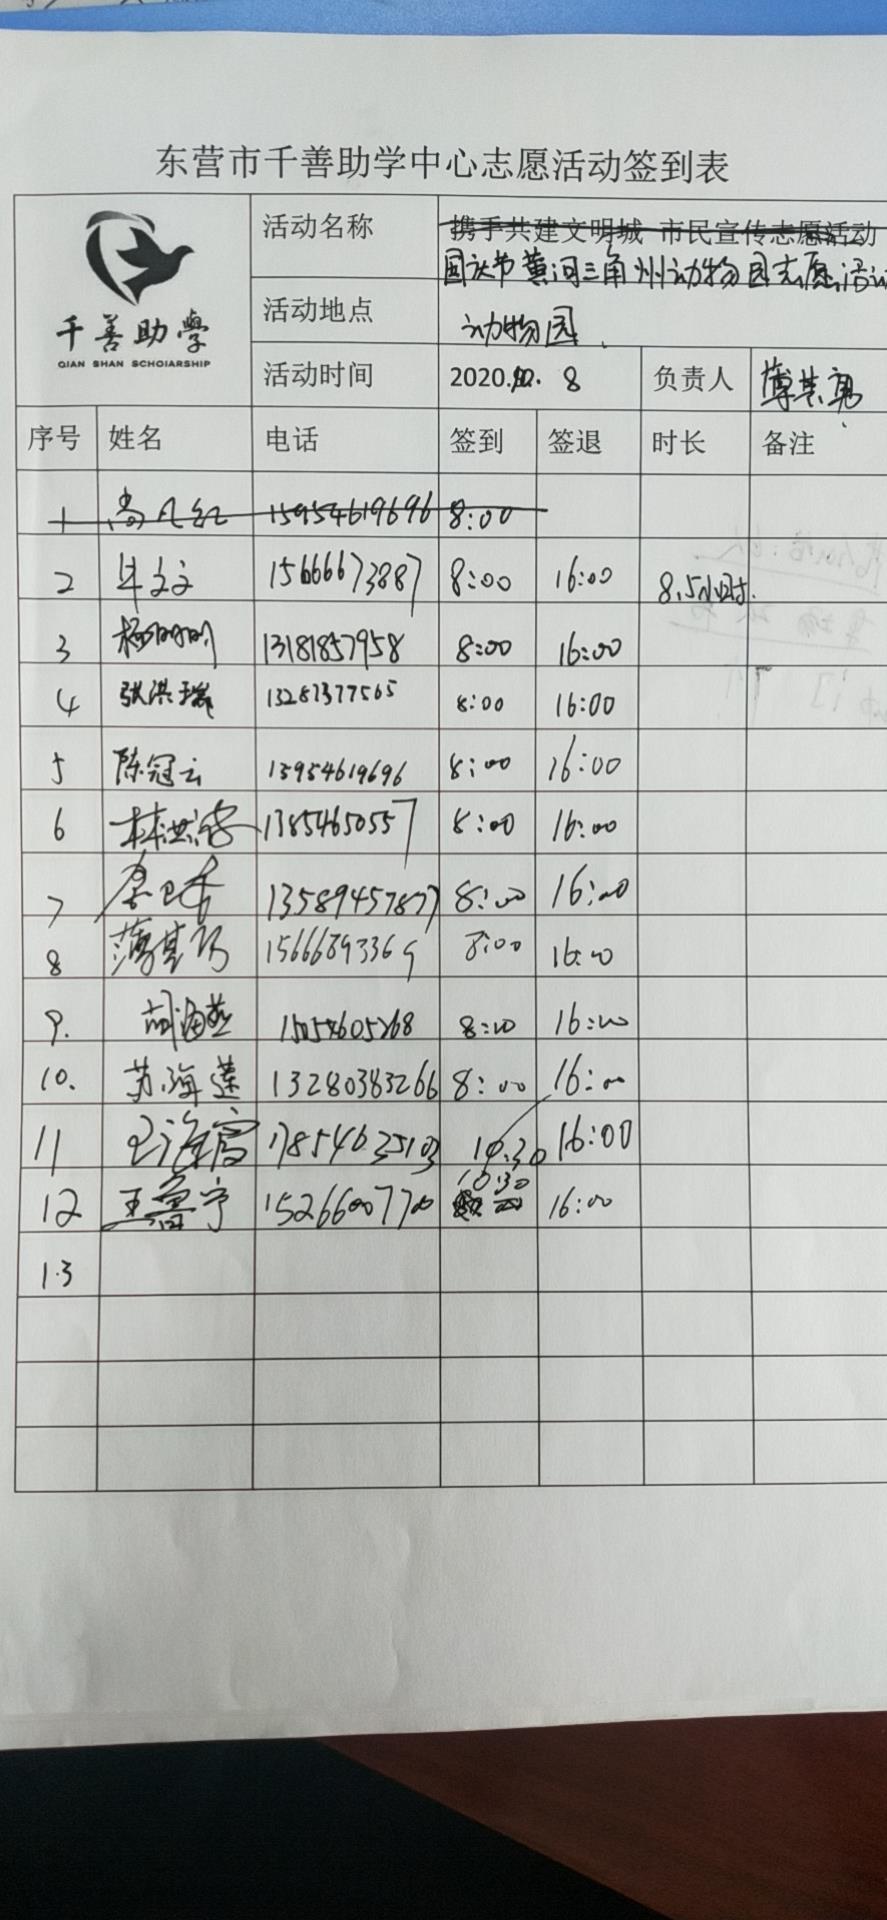 东营市千善助学中心志愿活动签到表
千善助學
QIAN SHAN SCHOIARSHIP
活动名称 携手共建文明城 市民宣传志愿活动
国庆节黄河三角州动物园志愿活动
活动地点 动物园
活动时间 2020.10.8 负责人 薄其勇
序号 姓名 电话 签到 签退 时长 备注
1 15954619696 8:00
2 牟文文 15666673887 8:00 16:00 8.5小时.
3 杨明明 13181857958 8:00 16:00
4 张洪瑞 13287377565 8:00 16:00
5 陈冠云 15954619696 8:00 16:00
6 林 13854650557 8:00 16:00
7 13589457877 8:00 16:00
8 薄其 15666893369 8:00 16:00
9. 胡海燕 15054605268 8:00 16:00
10. 苏海莲 13280383266 8:00 16:00
11 王海 17854635103 10:30 16:00
12 王鲁宁 15266007700 10:30 16:00
13